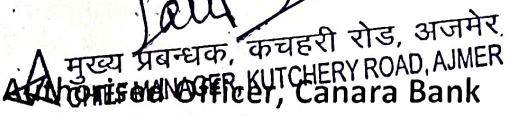 मुख्य प्रबन्धक, कचहरी रोड, अजमेर.
CHIEF MANAGER, KUTCHERY ROAD, AJMER
Authorised Officer, Canara Bank